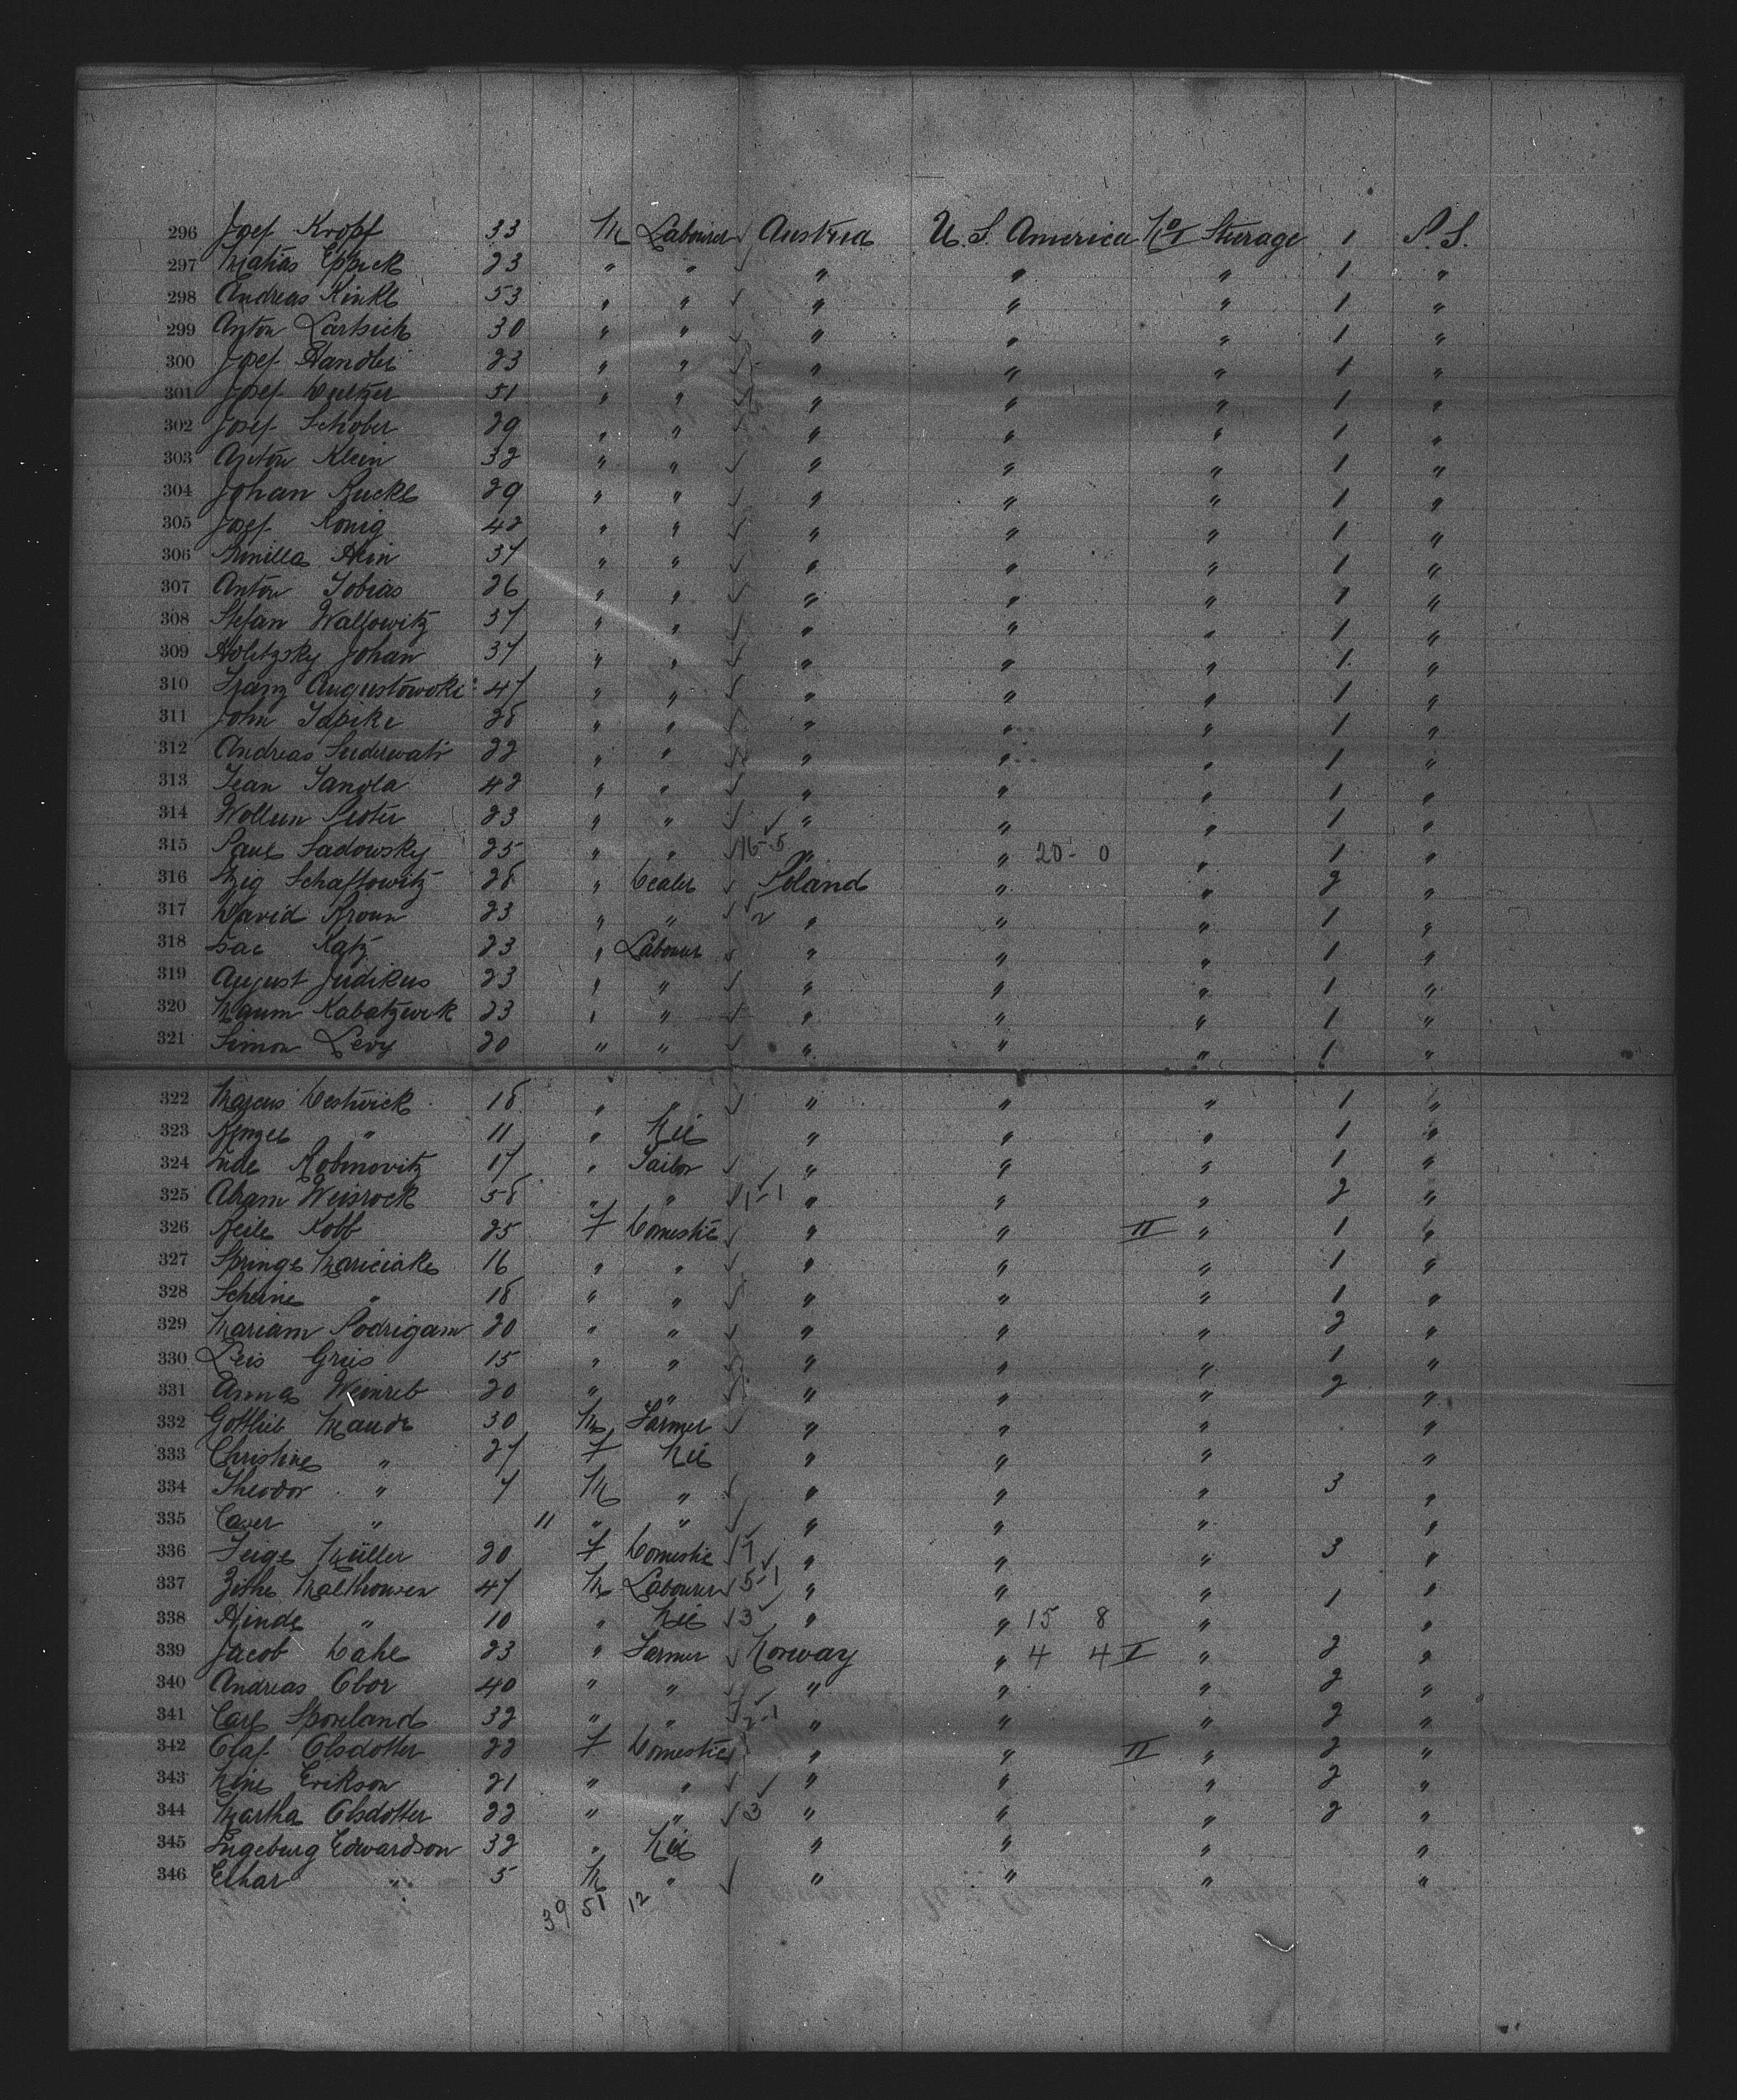 296 Josef Kropf 33 M Labourer Austria U. S. America No I Steerage 1 P. S.
297 Matias Eppick 23 " " " " " 1 "
298 Andreas Kinkl 53 " " " " " 1 "
299 Anton Lartsich 30 " " " " " 1 "
300 Josef Handler 23 " " " " " 1 "
301 Josef 51 " " " " " 1 "
302 Josef Schober 29 " " " " " 1 "
303 Anton Klein 32 " " " " " 1 "
304 Johan Kuckl 29 " " " " " 1 "
305 Josef Konig 42 " " " " " 1 "
306 37 " " " " " 1 "
307 Anton Tobias 26 " " " " " 1 "
308 Stefan Wallowitz 37 " " " " " 1 "
309 Holitzsky Johan 37 " " " " " 1 "
310 Franz Augustowski 47 " " " " " 1 "
311 John 28 " " " " " 1 "
312 Andreas 22 " " " " " 1 "
313 Jean Sandla 42 " " " " " 1 "
314 23 " " " " " 1 "
315 Paul Sadowsky 25 " " 16-5 " " 20- 0 " 1 "
316 Schaftowitz 28 " Dealer Poland " " 2 "
317 David Kroun 23 " " 2 " " " 1 "
318 Isac Katz 23 " Labourer " " " 1 "
319 August Judikus 23 " " " " " 1 "
320 Naum Kabatzwik 23 " " " " " 1 "
321 Simon Levy 20 " " " " " 1 "
322 Marcus Destwick 18 " " " " " 1 "
323 " 11 " Nil " " " 1 "
324 Robinovitz 17 " Tailor " " " 1 "
325 Abram Weisrock 58 " " 1-1 " " " 2 "
326 Keile Kobb 25 F Domestic " " II " 1 "
327 Springe Mariciake 16 " " " " " 1 "
328 Scheine " 18 " " " " " 1 "
329 Mariam Podrigam 20 " " " " " 2 "
330 Leis Greis 15 " " " " " 1 "
331 Anna Weinreb 20 " " " " " 2 "
332 Gottlieb Maude 30 M Farmer " " " "
333 Christine " 27 F Nil " " " "
334 Theodor " 7 M " " " " 3 "
335 " 11 " " " " " "
336 Feige Müller 20 F Domestic 7 " " " 3 "
337 47 M Labourer 5-1 " " " 1 "
338 Hinde " 10 " Nil 3 " " 15 8 " "
339 Jacob Dahe 23 " Farmer Norway " 4 4 I " 2 "
340 Andreas Obor 40 " " " " " 2 "
341 Carl Sporeland 32 " " 2-1 " " " 2 "
342 Olaf Olsdotter 22 F Domestic " " II " 2 "
343 Nine Erikson 21 " " " " " 2 "
344 Martha Olsdotter 22 " " 3 " " " 2 "
345 Ingeburg Edwardson 32 " Nil " " " "
346 Elhar " 5 M " " " " "
39 51 12